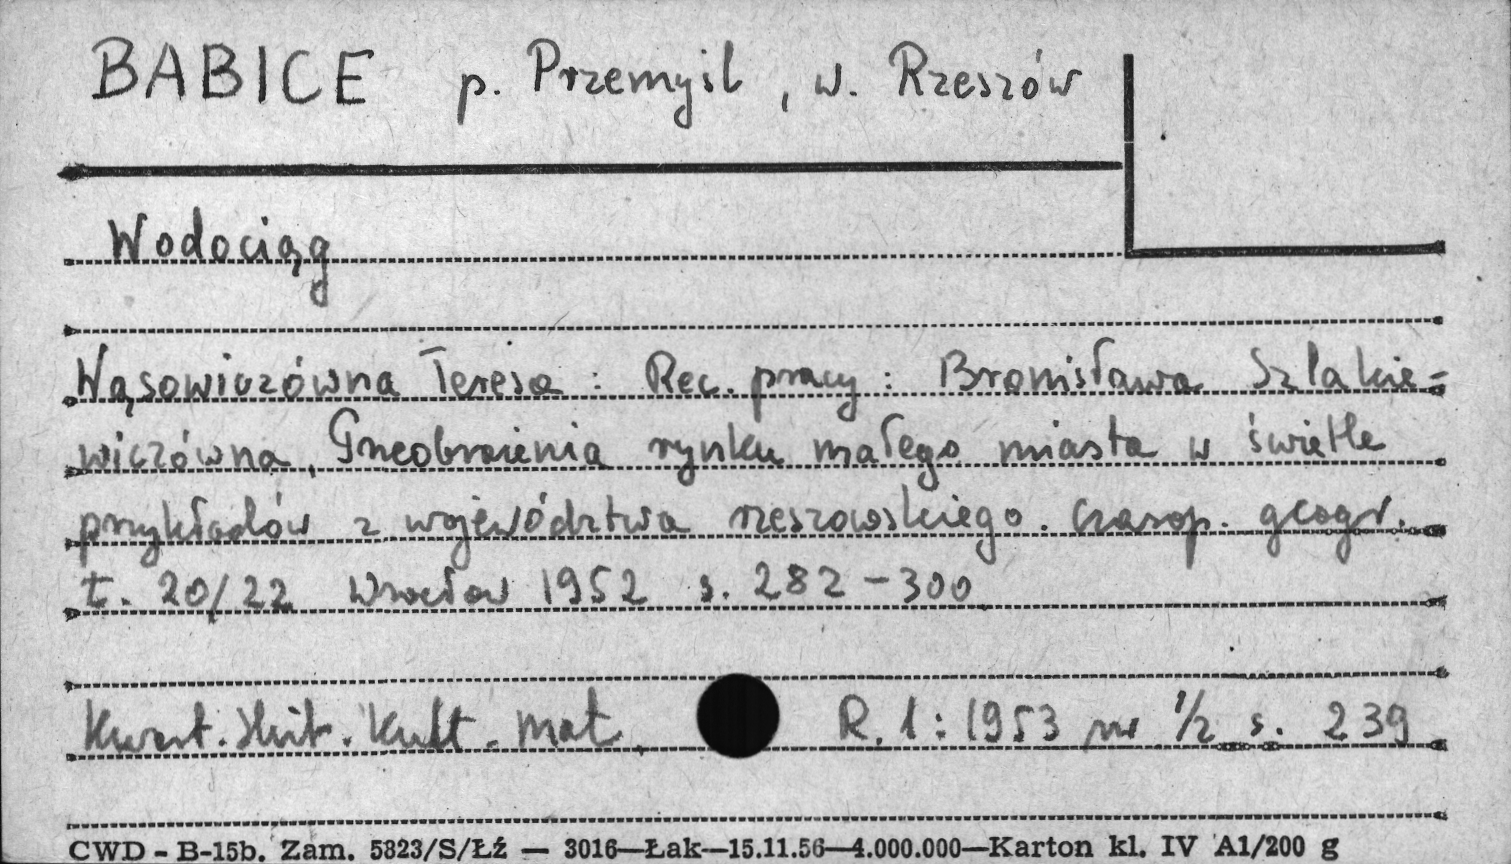 BABICE p. Przemyśl, w. Rzeszów
Wodociąg
Wąsowiczówna Teresa: Rec. pracy: Bronisława Szlakie-
wiczówna, Przeobrażenia rynku małego miasta w świetle
przykładów z województwa rzeszowskiego. Czasop. geogr.
t. 20/22 Wrocław 1952 s. 282-300
Kwart. Hist. Kult. Mat. R. 1: 1953 nr 1/2 s. 239
CWD - B-15b. Zam. 5823/S/Łź — 3016—Łak—15.11.56—4.000.000—Karton kl. IV A1/200 g